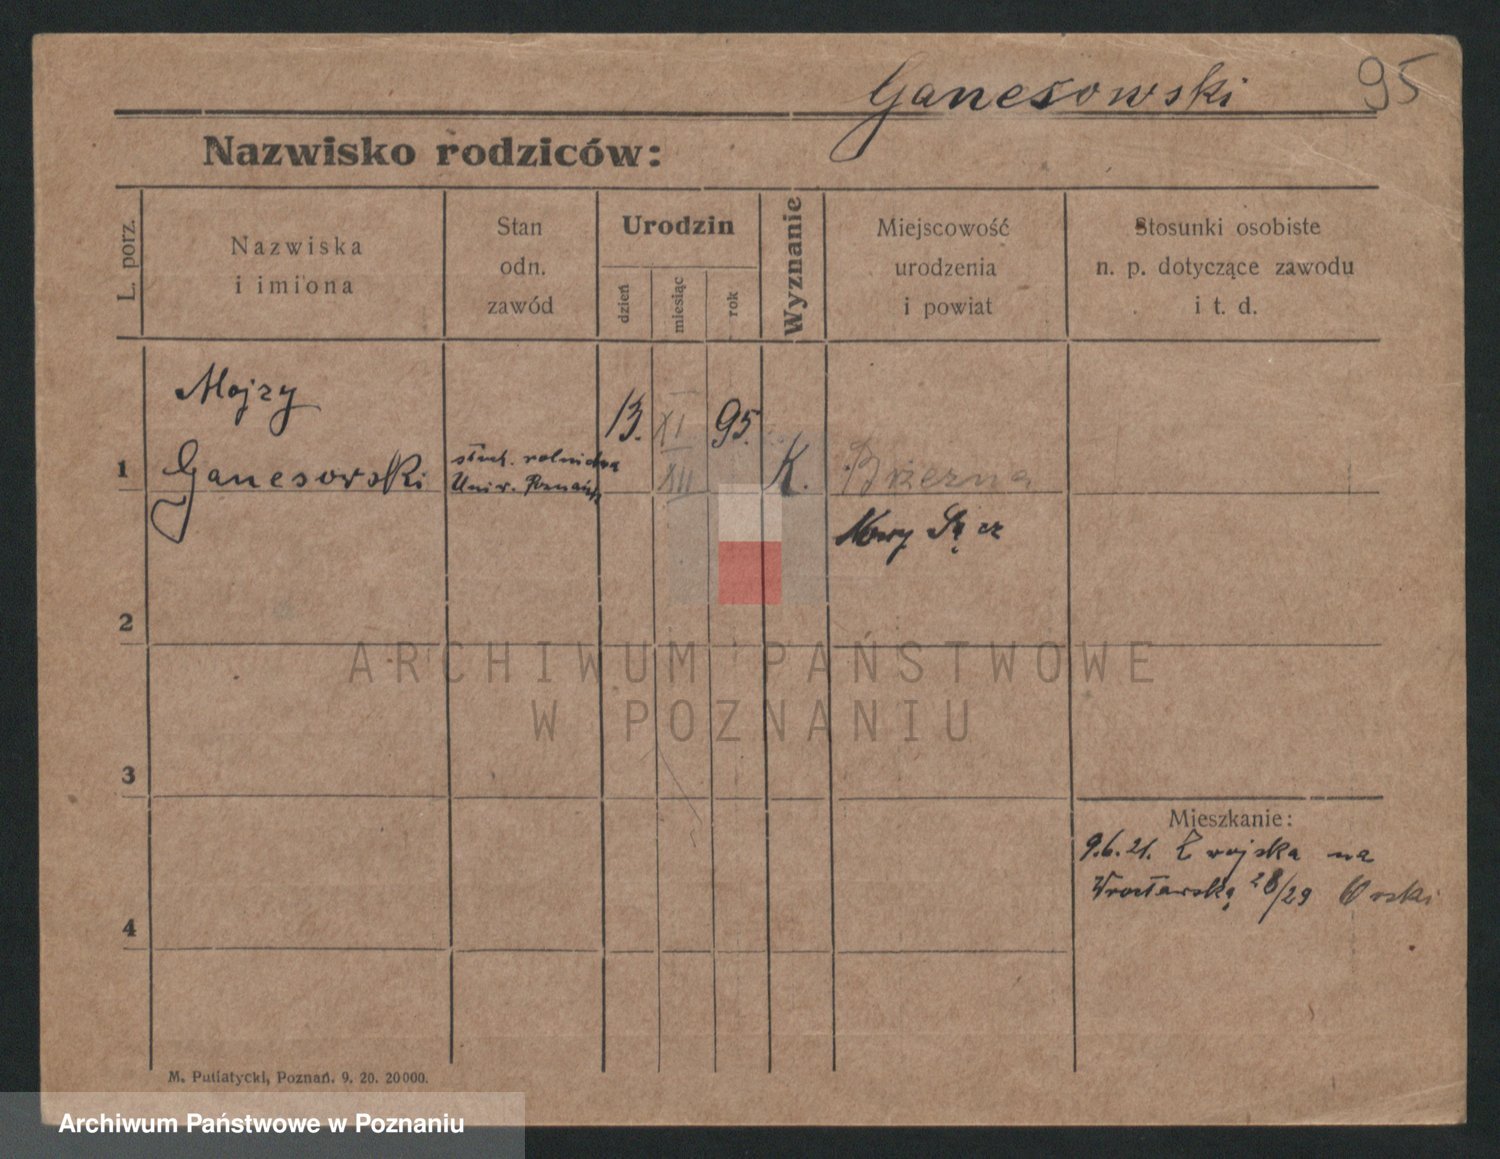 Ganesowski 95
Nazwisko rodziców:
L. porz.
Nazwiska
i imiona
Stan
odn.
zawód
Urodzin
dzień
miesiąc
rok
Wyznanie
Miejscowość
urodzenia
i powiat
Stosunki osobiste
n. p. dotyczące zawodu
i t. d.
Mojzy
1 Ganesowski
słuch. rolnictwa
Uniw. Poznańsk
13. XI 95.
XII
K.
Brzezna
Nowy Sącz
2
3
4
Mieszkanie:
9.6.21. Z wojska na
Wrocławską 28/29
M. Putiatycki, Poznań. 9. 20. 20000.
ARCHIWUM PAŃSTWOWE
W POZNANIU
Archiwum Państwowe w Poznaniu